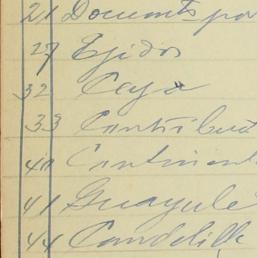 21 Documents por
27 Ejidos
32 Caja
33 Contribu
40 Continent
41 Guayule
44 Candelill